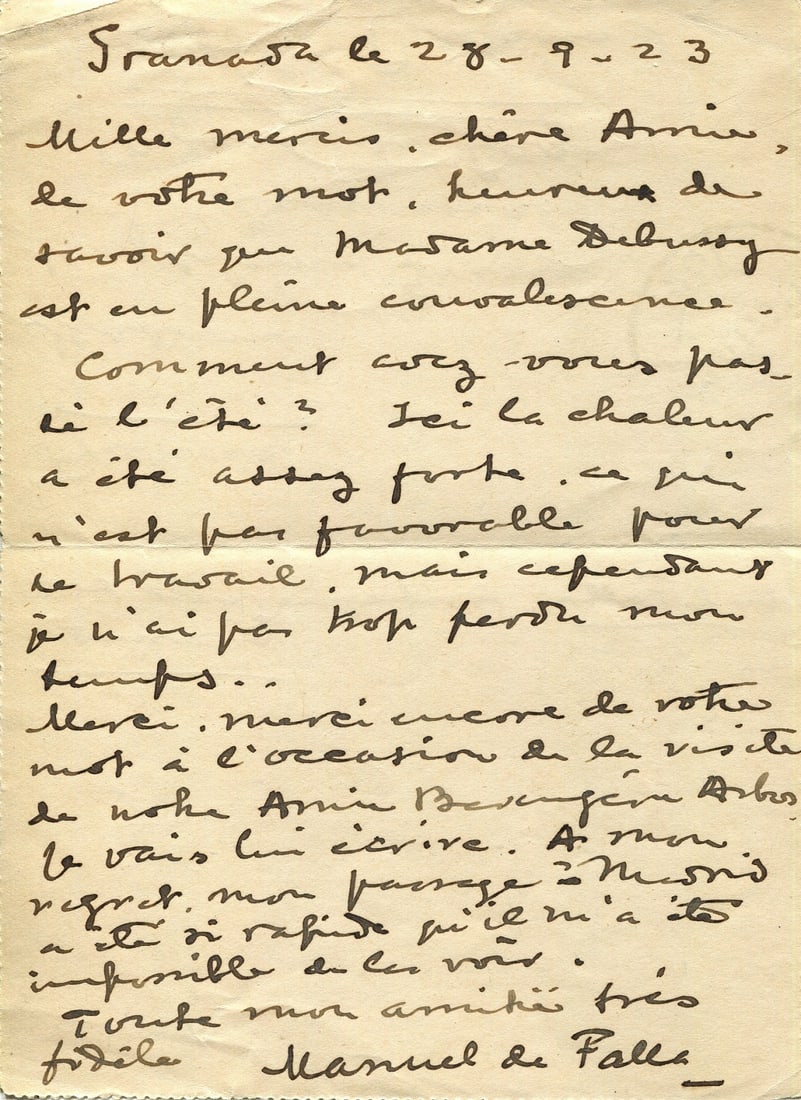 Granada le 28-9-23
Mille mercis, chère Amie,
de votre mot, heureux de
savoir que Madame Debussy
est en pleine convalescence.
Comment avez-vous pas-
sé l'été ? Ici la chaleur
a été assez forte, ce qui
n'est pas favorable pour
le travail, mais cependant
je n'ai pas trop perdu mon
temps..
Merci, merci encore de votre
mot à l'occasion de la visite
de notre Amie Berengère Arbos.
Je vais lui écrire. A mon
regret, mon passage à Madrid
a été si rapide qu'il m'a été
impossible de les voir.
Toute mon amitié très
fidèle Manuel de Falla